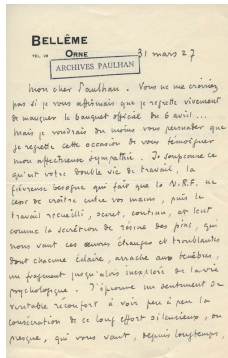 BELLÊME
ORNE
TEL 28
31 mars 27
ARCHIVES PAULHAN
mon cher Paulhan. Vous ne me croiriez
pas si je vous affirmais que je regrette vivement
de manquer le banquet officiel du 6 avril...
Mais je voudrais du moins vous persuader que
je regrette cette occasion de vous témoigner
mon affectueuse sympathie. Je soupçonne ce
qu'est votre double vie de travail, la
fiévreuse besogne qui fait que la N.R.F. ne
cesse de croître entre vos mains, puis le
travail recueilli, secret, continu, et lent
comme la sécrétion de résine des pins, qui
nous vaut ces œuvres étranges et troublantes
dont chacune éclaire, arrache aux ténèbres,
un fragment jusqu'alors inexploré de la vie
psychologique. J'éprouve un sentiment de
véritable réconfort à voir peu à peu la
consécration de ce long effort silencieux, ou
presque, qui vous vaut, depuis longtemps,